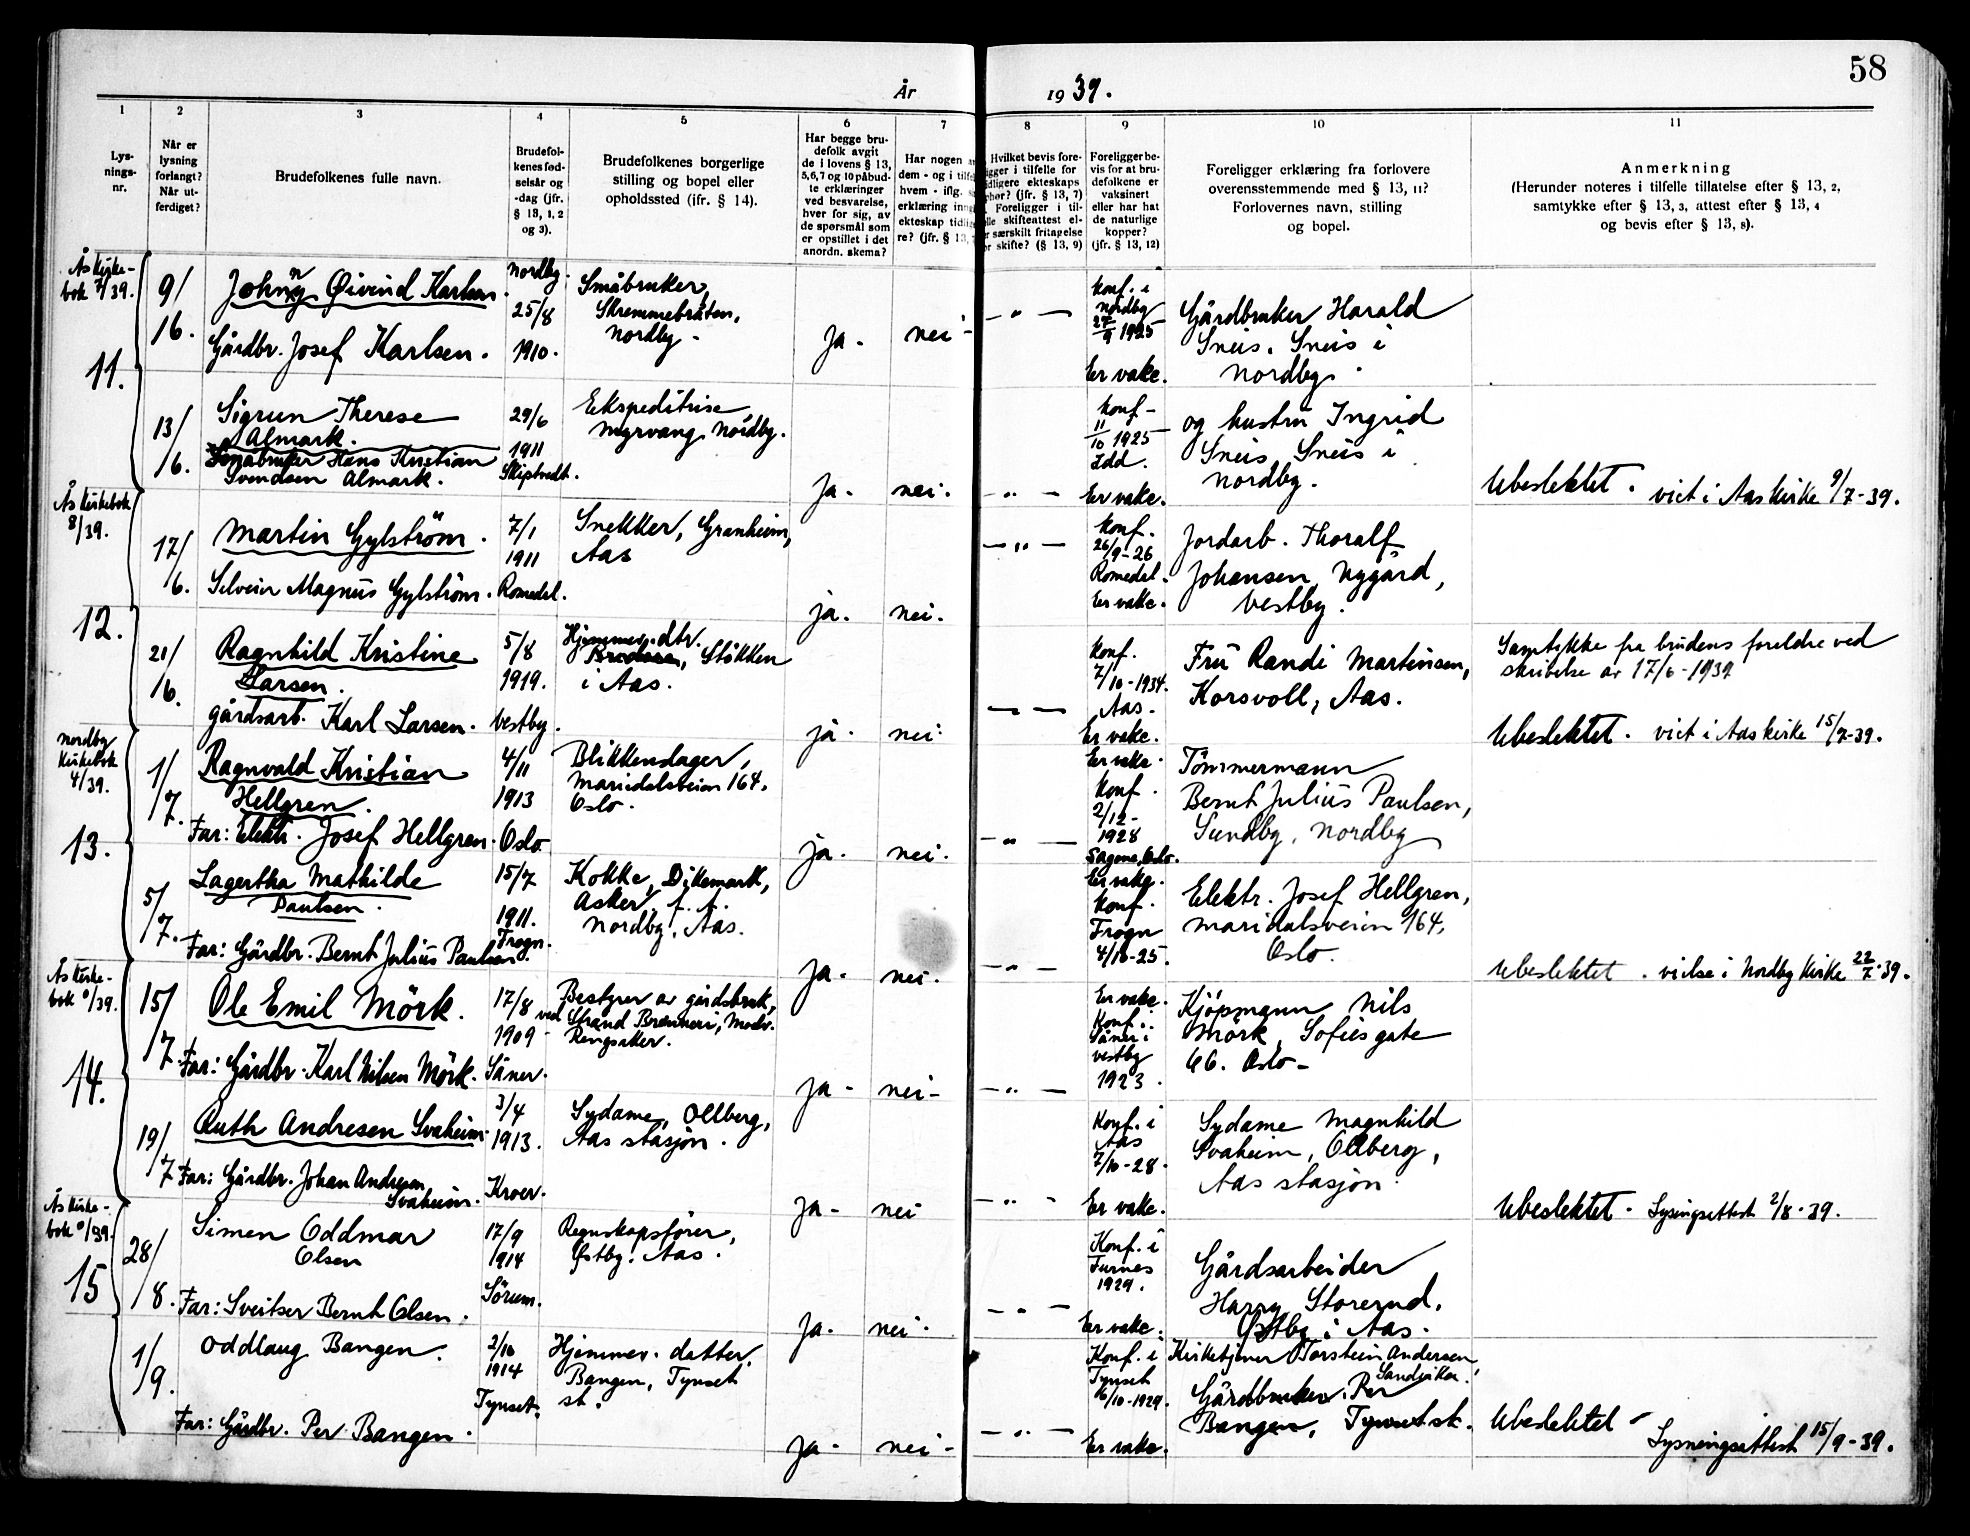 58
År 1939.
1
2
3
4
5
6
7
8
9
10
11
Lys-
nings-
nr.
Når er
lysning
forlangt?
Når ut-
ferdiget?
Brudefolkenes fulle navn.
Brudefol-
kenes fød-
selsår og
-dag (jfr.
§ 13, 1, 2
og 3).
Brudefolkenes borgerlige
stilling og bopel eller
opholdssted (ifr. § 14).
Har begge bru-
defolk avgit
de i lovens § 13,
5,6,7 og 10 påbud-
te erklæringer
ved besvarelse,
hver for sig, av
de spørsmål som
er opstillet i det
anordn. skema?
Har nogen a
dem - og i tilfe
hvem - iflg. s
erklæring inng
ekteskap tidlig
re? (jfr. § 13, 7
Hvilket bevis fore-
igger i tilfelle for
idligere ekteskaps
phør? (jfr. § 13, 7)
Foreligger i til-
elle skifteattest el-
r særskilt fritagelse
or skifte? (§ 13, 9)
Foreligger be-
vis for at bru-
defolkene er
vaksinert
eller har hat
de naturlige
kopper?
(jfr. § 13, 12)
Foreligger erklæring fra forlovere
overensstemmende med § 13, 11?
Forlovernes navn, stilling
og bopel.
Anmerkning
(Herunder noteres i tilfelle tillatelse efter § 13, 2,
samtykke efter § 13, 3, attest efter § 13, 4
og bevis efter § 13, 8).
Ås kirke-
bok 7/39.
11.
9/
16.
Johnny Øivind Karlsen.
Gårdbr. Josef Karlsen.
Nordby.
25/8
1910.
Småbruker,
Skremmebråten,
Nordby.
ja.
nei.
— " —
Konf. i
Nordby
27/9 1925
Er vake.
Gårdbruker Harald
Sneis, Sneis i
Nordby.
13/
16.
Sigrun Therese
Almark.
Småbruker Hans Kristian
Svendsen Almark.
29/6
1911
Skiptvedt.
Ekspeditrise
Myrvang Nordby.
ja.
nei.
— " —
Konf.
11/10 1925
Idd.
Er vake.
og hustru Ingrid
Sneis, Sneis i
Nordby.
Ubeslektet. viet i Aas kirke 9/7-39.
Ås kirkebok
8/39.
12.
17/
6.
Martin Gylstrøm.
Selveier Magnus Gylström.
7/1
1911
Romedal.
Snekker, Granheim,
Aas
ja.
nei.
— " —
Konf.
26/9-26
Romedal.
Er vake.
Jordarb. Thoralf
Johansen, Nygård,
Vestby.
21/
6.
Ragnhild Kristine
Larsen.
gårdsarb. Karl Larsen.
5/8
1919.
Vestby.
Hjemmev. dtr.
Stökken
i Aas.
ja.
nei.
— —
Konf.
7/10-1934.
Aas.
Er vake.
Fru Randi Martinsen,
Korsvoll, Aas.
Samtykke fra brudens foreldre ved
skrivelse av 17/6-1939
Ubeslektet. viet i Aas kirke 15/7-39.
Nordby
Kirkebok
4/39.
13.
1/
7.
Ragnvald Kristian
Hellgren.
Far: Elektr. Josef Hellgren.
4/11
1913
Oslo
Blikkenslager,
Maridalsveien 164,
Oslo.
ja.
nei.
— " —
Er vake.
Konf.
2/12-
1928
Sagene, Oslo.
Tömmermann
Bernt Julius Paulsen,
Sundby, Nordby
5/
7.
Lagertha Mathilde
Paulsen.
Far: Gårdbr. Bernt Julius Paulsen.
15/7
1911.
Frogn.
Kokke, Dikemark,
Asker, f. t.
Nordby, Aas.
ja.
nei.
— " —
Er vake.
Konf.
Frogn
4/10-25.
Elektr. Josef Hellgren,
Maridalsveien 164,
Oslo.
Ubeslektet. vielse i Nordby kirke 22/7-39.
Ås kirke-
bok 9/39.
14.
15/
7.
Ole Emil Mörk.
Far: Gårdbr. Karl Nilsen Mörk.
17/8
1909
Såner.
Bestyrer av gårdsbruk,
ved Strand Brenneri, Moelv.
Ringsaker.
ja.
nei.
— " —
Er vake.
Konf. i
Såner i
Vestby
1923.
Kjöpmann Nils
Mörk, Sofiesgate
66. Oslo.
19/
7
Ruth Andresen Svaheim
Far: Gårdbr. Johan Andresen
Svaheim.
3/4
1913.
Kroer.
Sydame, Ollberg,
Aas stasjon.
ja.
nei
— " —
Konf. i
Aas
7/10-28.
Er vake.
Sydame Magnhild
Svaheim, Ollberg,
Aas stasjon.
Ubeslektet. Lysingsattest 2/8-39.
Ås kirke-
bok /39.
15
28/
8.
Simen Oddmar
Olsen
Far: Sveitser Bernt Olsen.
17/9
1914
Sörum.
Regnskapsfører,
Østby. Aas.
ja.
nei.
— " —
Konf. i
Furnes
1929.
Er vake.
Gårdsarbeider
Harry Storerud,
Østby i Aas.
1/
9.
Oddlaug Bangen.
Far: Gårdbr. Per Bangen.
2/10
1914
Tynset.
Hjemmev. datter,
Bangen, Tynset
st.
ja.
nei.
— " —
Konf. i
Tynset
16/10-1929.
Er vake.
Kirketjener Torstein Andersen,
Sandviken.
Gårdbruker Per
Bangen, Tynset st.
Ubeslektet
Lysningsattest 15/9-39.